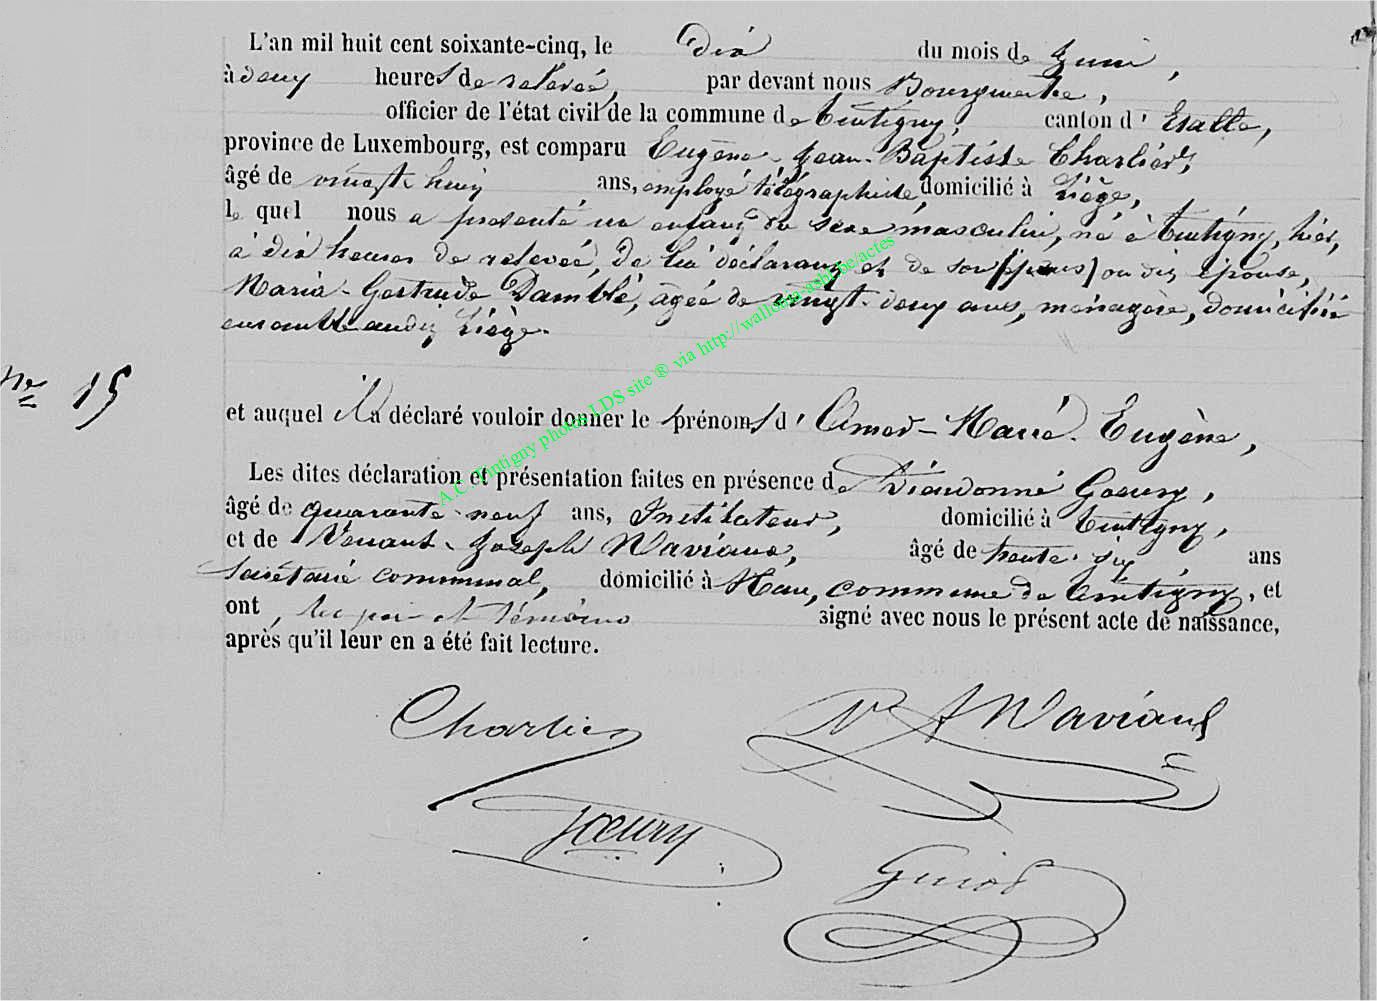 L'an mil huit cent soixante-cinq, le dix du mois de Juin,
à deux heures de relevée, par devant nous Bourgmestre,
officier de l'état civil de la commune de Tintigny, canton d'Etalle,
province de Luxembourg, est comparu Eugène-Jean-Baptiste Charlier,
âgé de vingt-huit ans, employé télégraphiste, domicilié à Liège,
lequel nous a présenté un enfant du sexe masculin, né à Tintigny, hier,
à dix heures de relevée, de lui déclarant et de son ou dix épouse,
Marie-Gertrude Damblé, âgée de vingt-deux ans, ménagère, domiciliée
Liège.
No 15
et auquel il a déclaré vouloir donner les prénoms d' Omer-Marie-Eugène,
Les dites déclaration et présentation faites en présence de Dieudonné Goeury,
âgé de quarante-neuf ans, Instituteur, domicilié à Tintigny,
et de Venant-Joseph Naviaux, âgé de trente-six ans
Secrétaire communal, domicilié à Han, commune de Tintigny, et
ont, les père et témoins signé avec nous le présent acte de naissance,
après qu'il leur en a été fait lecture.
Charlier
V J Naviaux
Goeury
Guiot
A.C. Tintigny photos LDS site ® via http://wallonia-asbl.be/actes